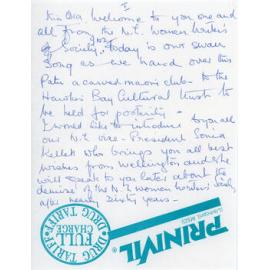 I
Kia Ora, Welcome to you one and
all from the N.Z. Women Writers
Society. Today is our swan
Song as we hand over this
Patu a carved maori club – to the
Hawkes Bay Cultural Trust to
be held for posterity –
I would like to introduce to you all
our N.Z. vice-President Sonia
Kellett who brings you all best
wishes from Wellington and she
will speak to you later about the
demise of the N.Z. Women Writers Society
after nearly sixty years –
PRINIVIL®
DRUG TARIFF
FULL
CHARGE
DRUG TARIFF